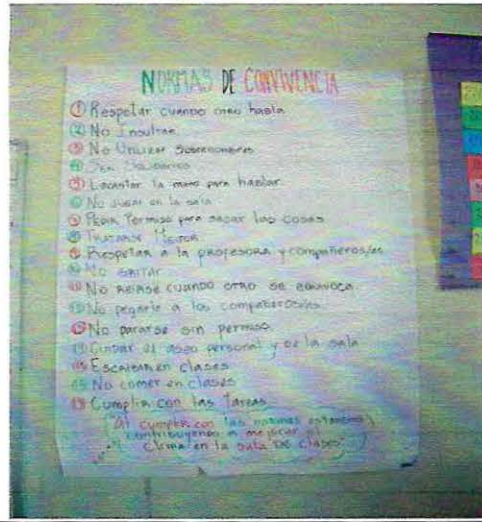 NORMAS DE CONVIVENCIA
① Respetar cuando otro habla
② No Insultar
③ No Utilizar Sobrenombres
④ Ser Solidarios
⑤ Levantar la mano para hablar
⑥ No jugar en la sala
⑦ Pedir Permiso para sacar las cosas
⑧ Tratarse Mejor
⑨ Respetar a la profesora y compañeros/as
⑩ No gritar
⑪ No reirse cuando otro se equivoca
⑫ No pegarle a los compañeros/as
⑬ No pararse sin permiso
⑭ Cuidar el aseo personal y de la sala
⑮ Escribir en clases
⑯ No comer en clases
⑰ Cumplir con las Tareas
"Al cumplir con las normas estamos
contribuyendo a mejorar el
clima en la sala de clases"